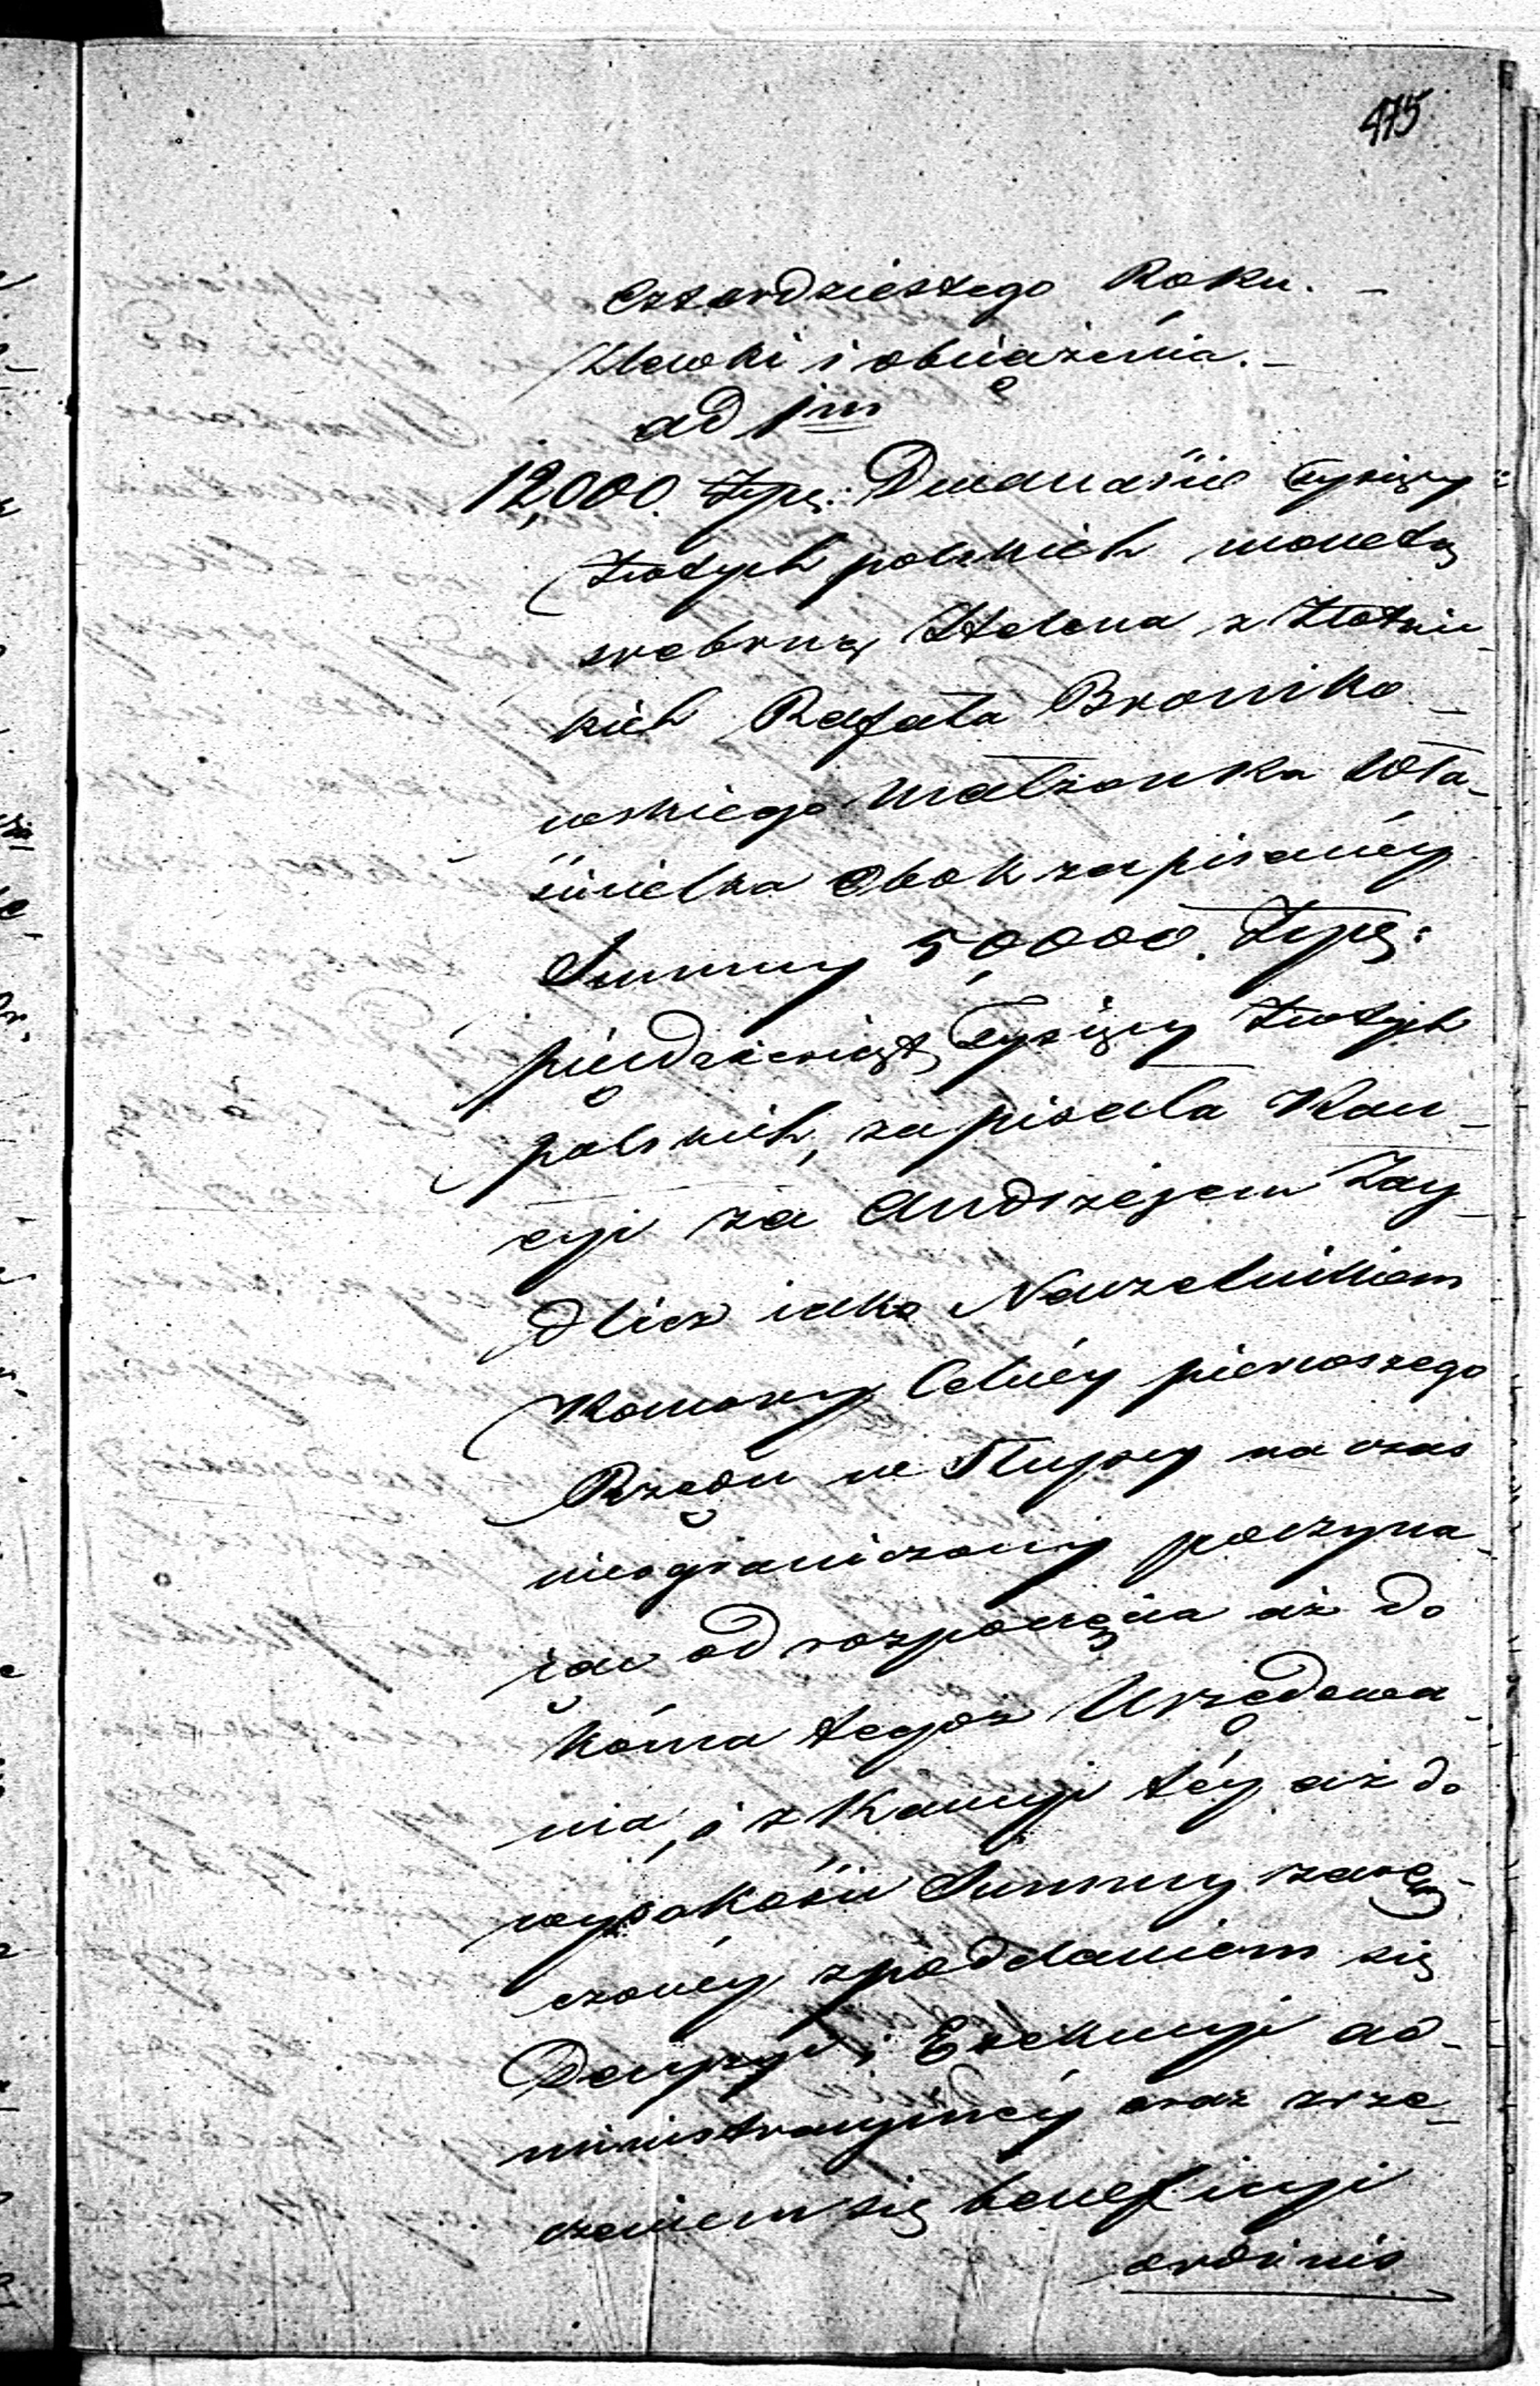 475
Czterdziestego Roku. –
Wlewki i obciążenia. –
ad 1m
12,000. Złpę: Dwanaście Tysięcy
Złotych polskich monetą
srebrną Helena z Złotnic-
kich Rafała Broniko-
wskiego Małżonka Wła-
ścicielka obok zapisanéy
Summy 50,000. Złpę:
pięćdziesiąt Tysięcy Złotych
polskich, zapisała Kau-
cyi za Andrzejem Zay-
dlicz iako Naczelnikiem
Komory Celnéy pierwszego
Rzędu we Słupcy na czas
nieograniczony poczyna-
iąc od rozpoczęcia aż do
końca tegoż Urzędowa-
nia, i z Kaucyi téy aż do
wysokości Summy zarę-
czonéy z poddaniem się
Decyzyi i Exekucyi ad-
ministracyinéy oraz zrze-
czeniem się beneficyi
ordinis